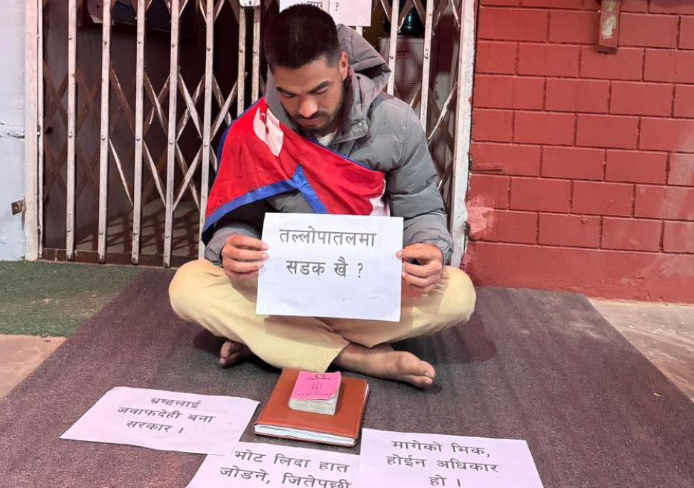 तल्लोपातलमा
सडक खै ?
भ्रष्टलाई
जवाफदेही बना
सरकार ।
भोट लिदा हात
जोडने, जितेपछी
मागेको भिक,
होईन अधिकार
हो ।